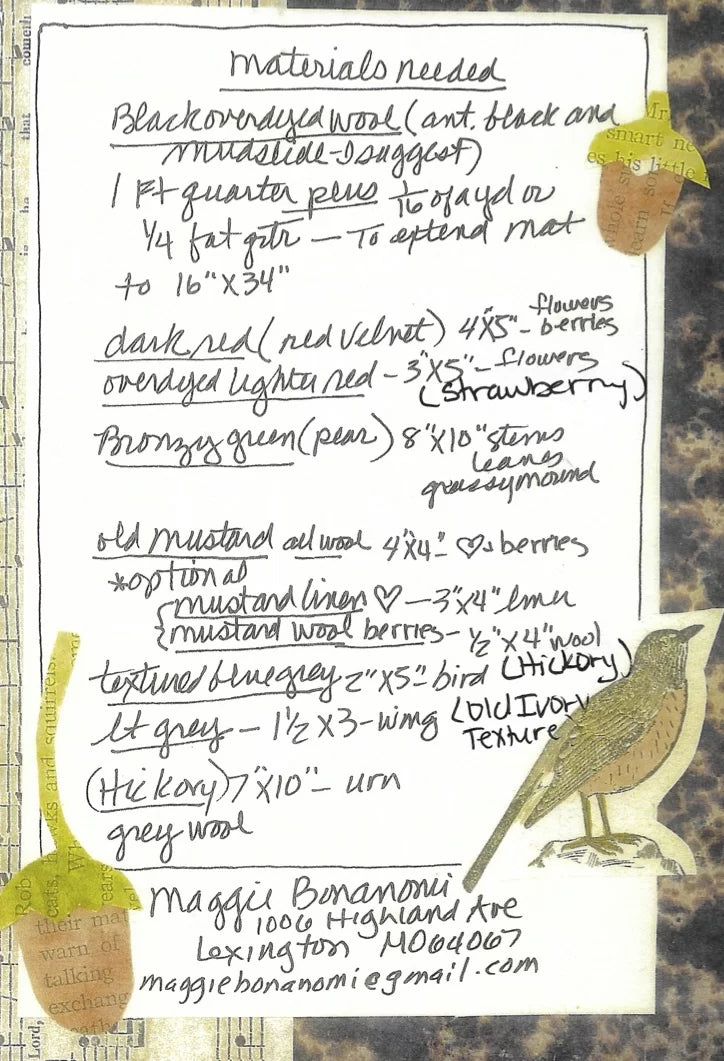 materials needed
Black overdyed wool (ant. black and
mudslide-I suggest)
1 Ft quarter plus 1/16 of a yd or
1/4 fat qtr — To extend mat
to 16" X 34"
dark red (red velvet) 4"X5" - flowers
berries
overdyed lighter red - 3"X5" - flowers
(strawberry)
Bronzy green (pear) 8"X10" stems
leaves
grassy mound
old mustard all wool 4"X4" - ♡ & berries
*optional
{mustard linen ♡ — 3"X4" linen
{mustard wool berries - 1/2" X 4" wool
textured blue grey 2"X5" - bird (Hickory)
lt grey - 1 1/2 X 3 - wing (old Ivory
Texture)
(Hickory) 7"X10" - urn
grey wool
Maggie Bonanomi
1006 Highland Ave
Lexington MO 64067
maggiebonanomi@gmail.com
Mr
smart ne
es his little
whole
learn so
cometh
that
is
ha
cats, hawks and squirrels.
Rob
ears
their mat
warn of
talking
exchang
Lord,